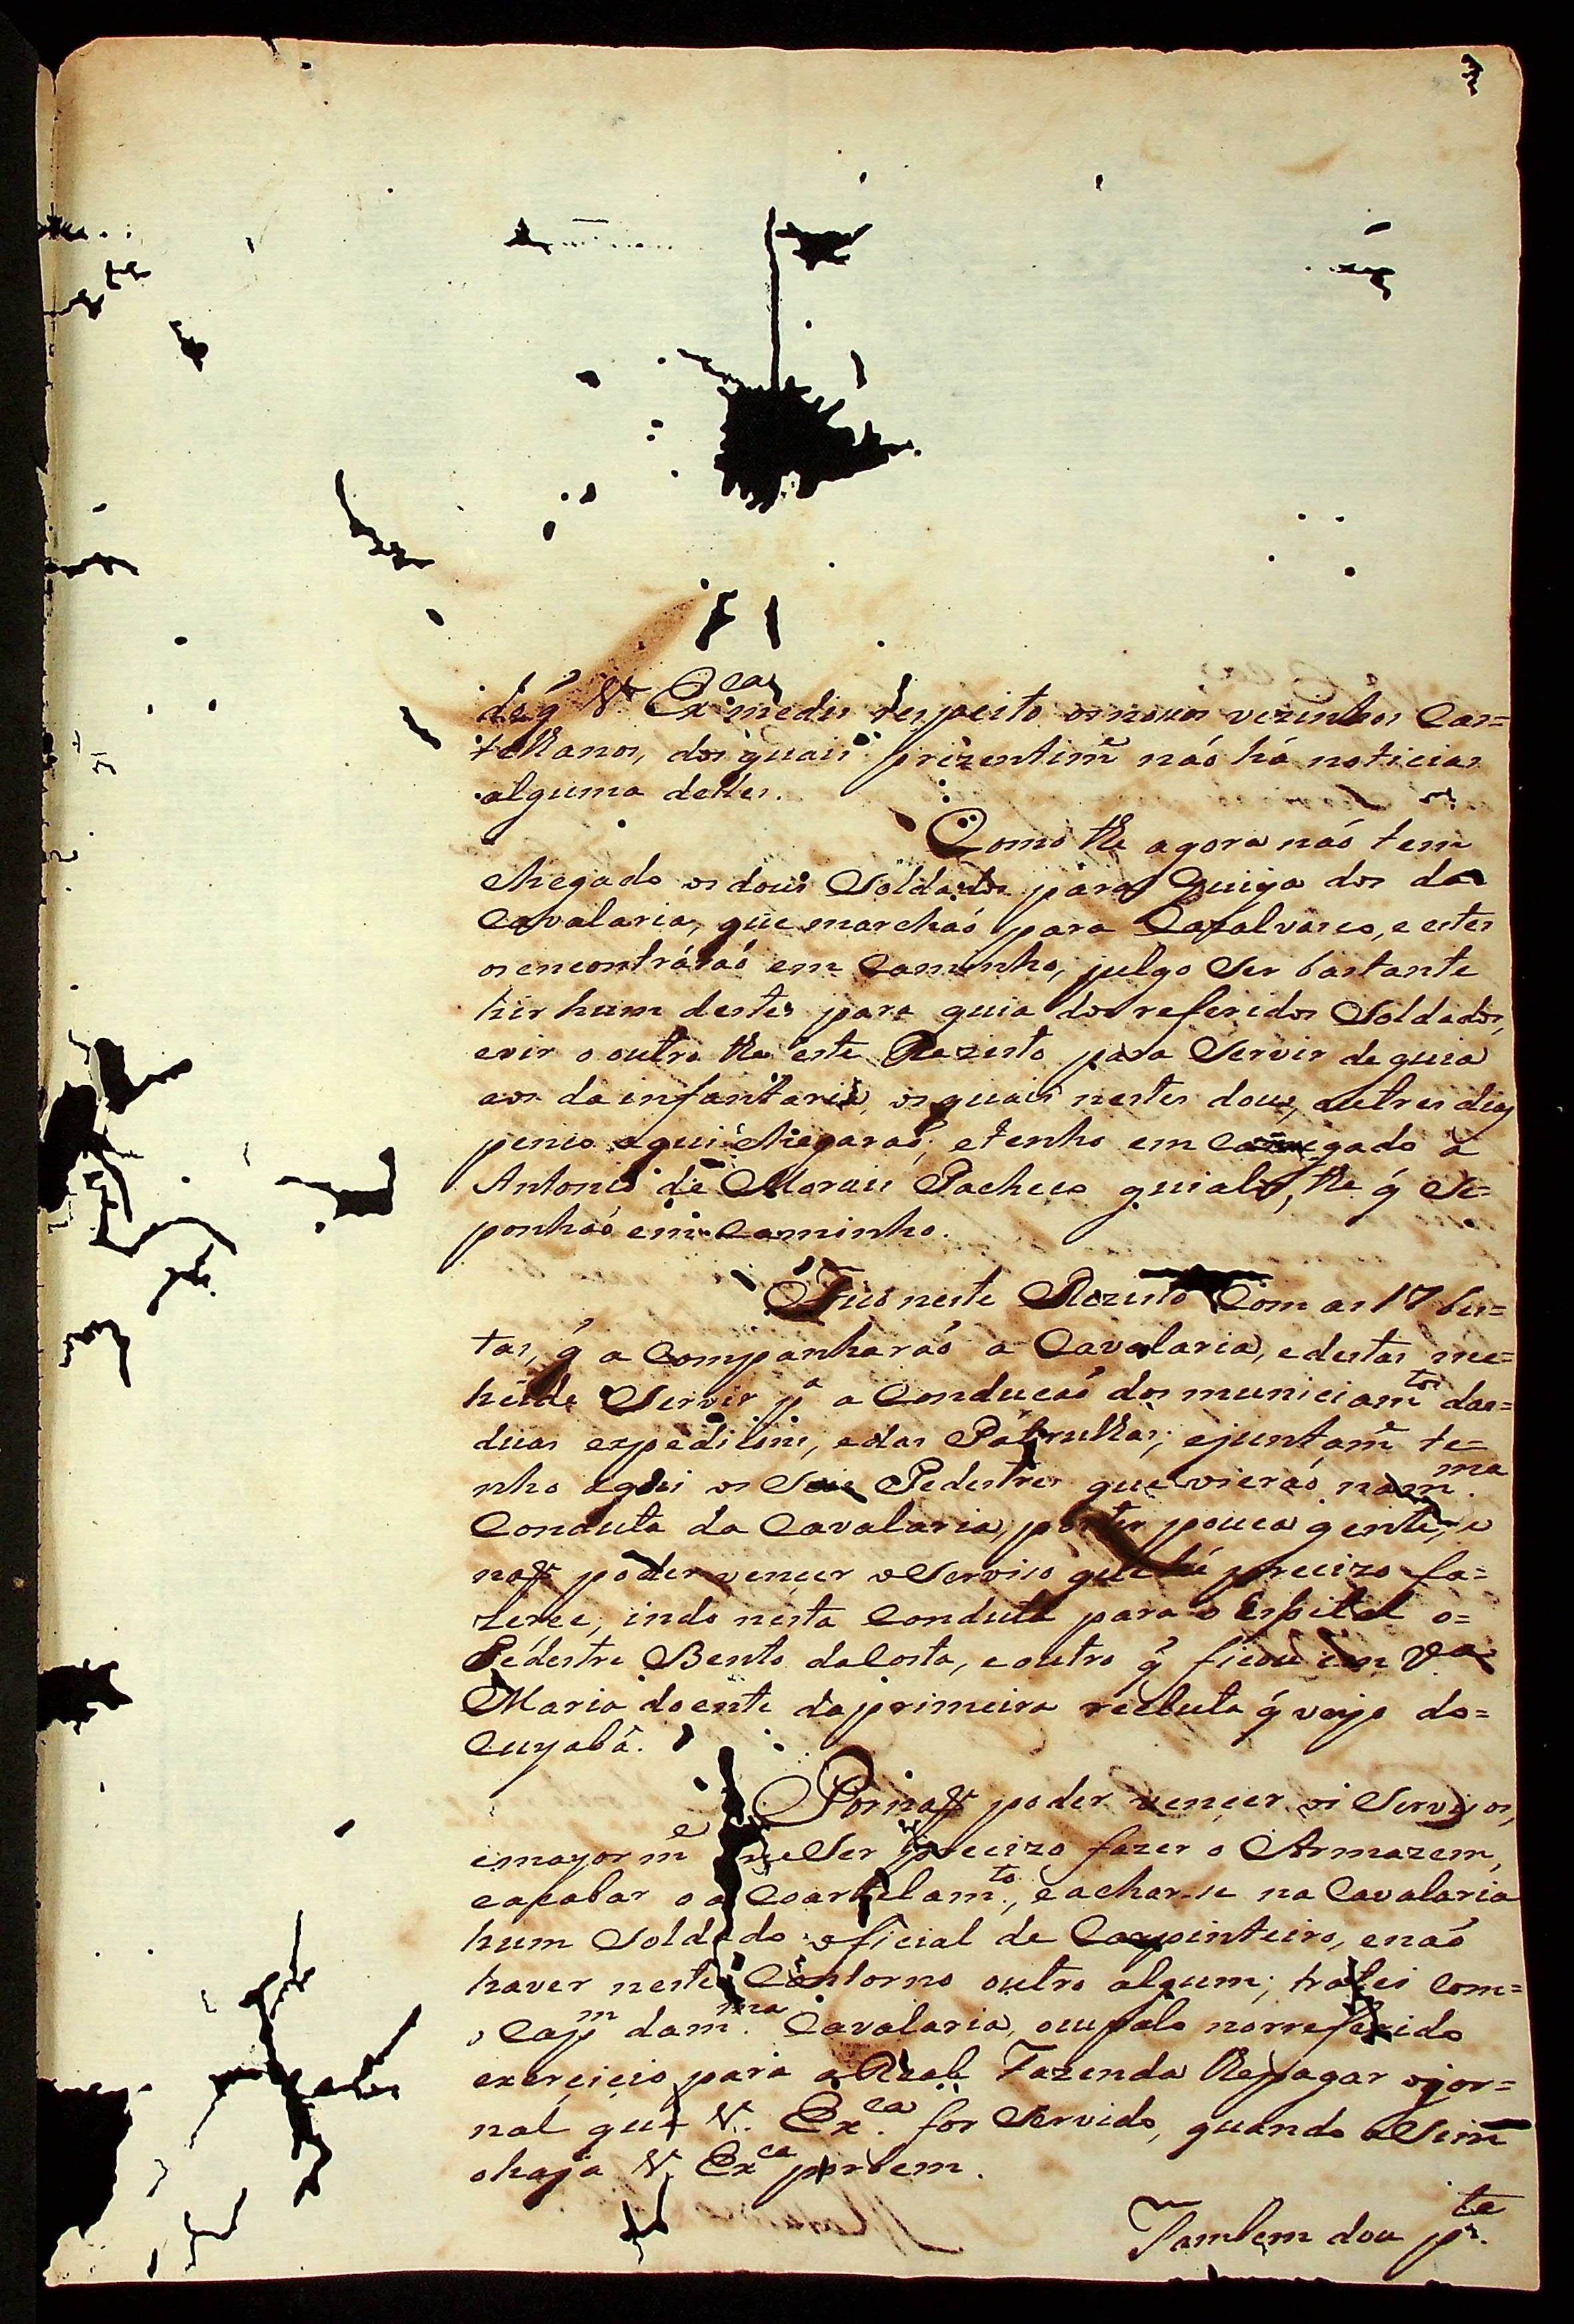 do q̃ V. Ex.ca me diz respeito os novos vezinhos Cas=
telhanos, dos quais prezentim.e naõ há noticias
alguma delles.
Como the agora naõ tem
chegado os dous Soldados para Guiya dos da
Cavalaria, que marchaõ para Cazalvasco, e estes
os encontráraõ em Caminho, julgo Ser bastante
hir hum destes para guia dos referidos Soldados,
e vir o outro the este Rezisto para Servir de guia
aos da infantaria, os quais nestes dous, outres dias
penço aqui chegaraõ, e tenho em Carregado a
Antonio de Morais Pacheco guialos, the q̃ Se=
ponhaõ em Caminho.
Fico neste Rezisto Com as 17 bes=
tas, q̃ a Companharaõ a Cavalaria, e destas me=
heide Servir p.a a Conducaõ dos municiam.tos das=
duas expedicoins, e das Patrulhas; ejuntam.e te=
nho aqui os Seis Pedestres que vieraõ na m.ma
Conduta da Cavalaria, por ter pouca gente, e
naõ poder vencer o Servico que hé precizo fa=
zerce, indo nesta Conduta para o Espital o=
Pédestre Bento da Costa, e outro q̃ ficou em V.a
Maria doente da primeira recluta q̃ veyo do=
Cuyabâ.
Por naõ poder vençer os Serviços,
emayorm.e me Ser precizo fazer o Armazem,
eacabar o a Coartelam.to, e achar-se na Cavalaria
hum Soldado oficial de Carpinteiro, enaõ
haver neste Contorno outro algum; tratei Com=
o Cap.m da m.ma Cavalaria, ocupalo norreferido
exerçicio para a Real Fazenda lhe pagar o jor=
nal que V. Ex.ca for Servido, quando aSim
o haja V. Ex.ca por bem.
Tambem dou p.te